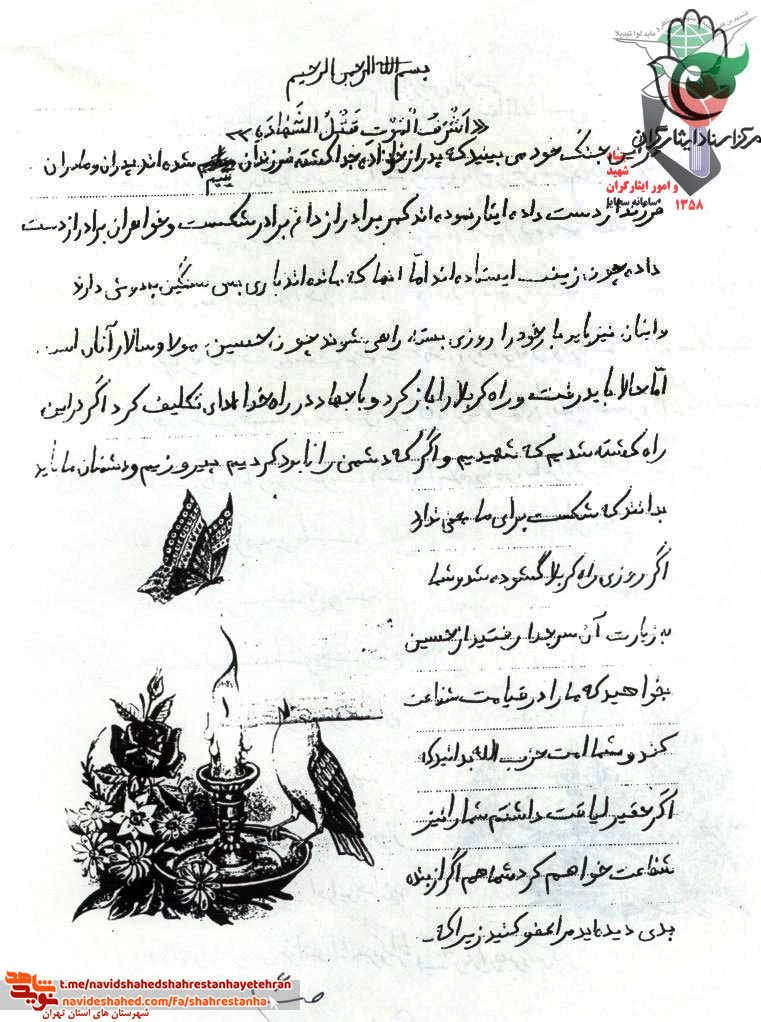 بسم الله الرحمن الرحیم
«اَشْرَفُ الْمَوْتِ قَتْلُ الشَّهادَهِ»
مرکز اسناد ایثارگران
شهید
و امور ایثارگران
۱۳۵۸
این جنگ خود می بینید که پدر از خانواده جدا گشته فرزندان یتیم شده اند پدران و مادران
فرزند از دست داده ایثار نموده اند کمر برادر از داغ برادر شکست و خواهران برادر از دست
داده چون زینب ایستاده اند امّا آنها که مانده اند باری بس سنگین بدوش دارند
و اینان نیز باید بار خود را روزی بسته راهی شوند چون حسین مولا و سالار آنان است.
امّا حالا باید رفت و راه کربلا را باز کرد و با جهاد در راه خدا ادای تکلیف کرد اگر در این
راه کشته شدیم که شهیدیم و اگر که دشمن را نابود کردیم پیروزیم و دشمنان ما باید
بدانند که شکست برای ما معنی ندارد
اگر روزی راه کربلا گشوده شد و شما
به زیارت آن سر جدا رفتید از حسین
بخواهید که ما را در قیامت شفاعت
کند و شما امت حزب الله بدانید که
اگر حقیر لیاقت داشتم شما را نیز
شفاعت خواهم کرد شما هم اگر از بنده
بدی دیده اید مرا عفو کنید زیرا که
نوید شاهد
t.me/navidshahedshahrestanhayetehran
navideshahed.com/fa/shahrestanha
شهرستان های استان تهران